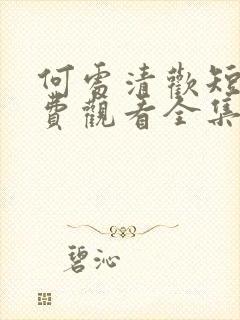 何處清歡短
費觀看全集
碧沁